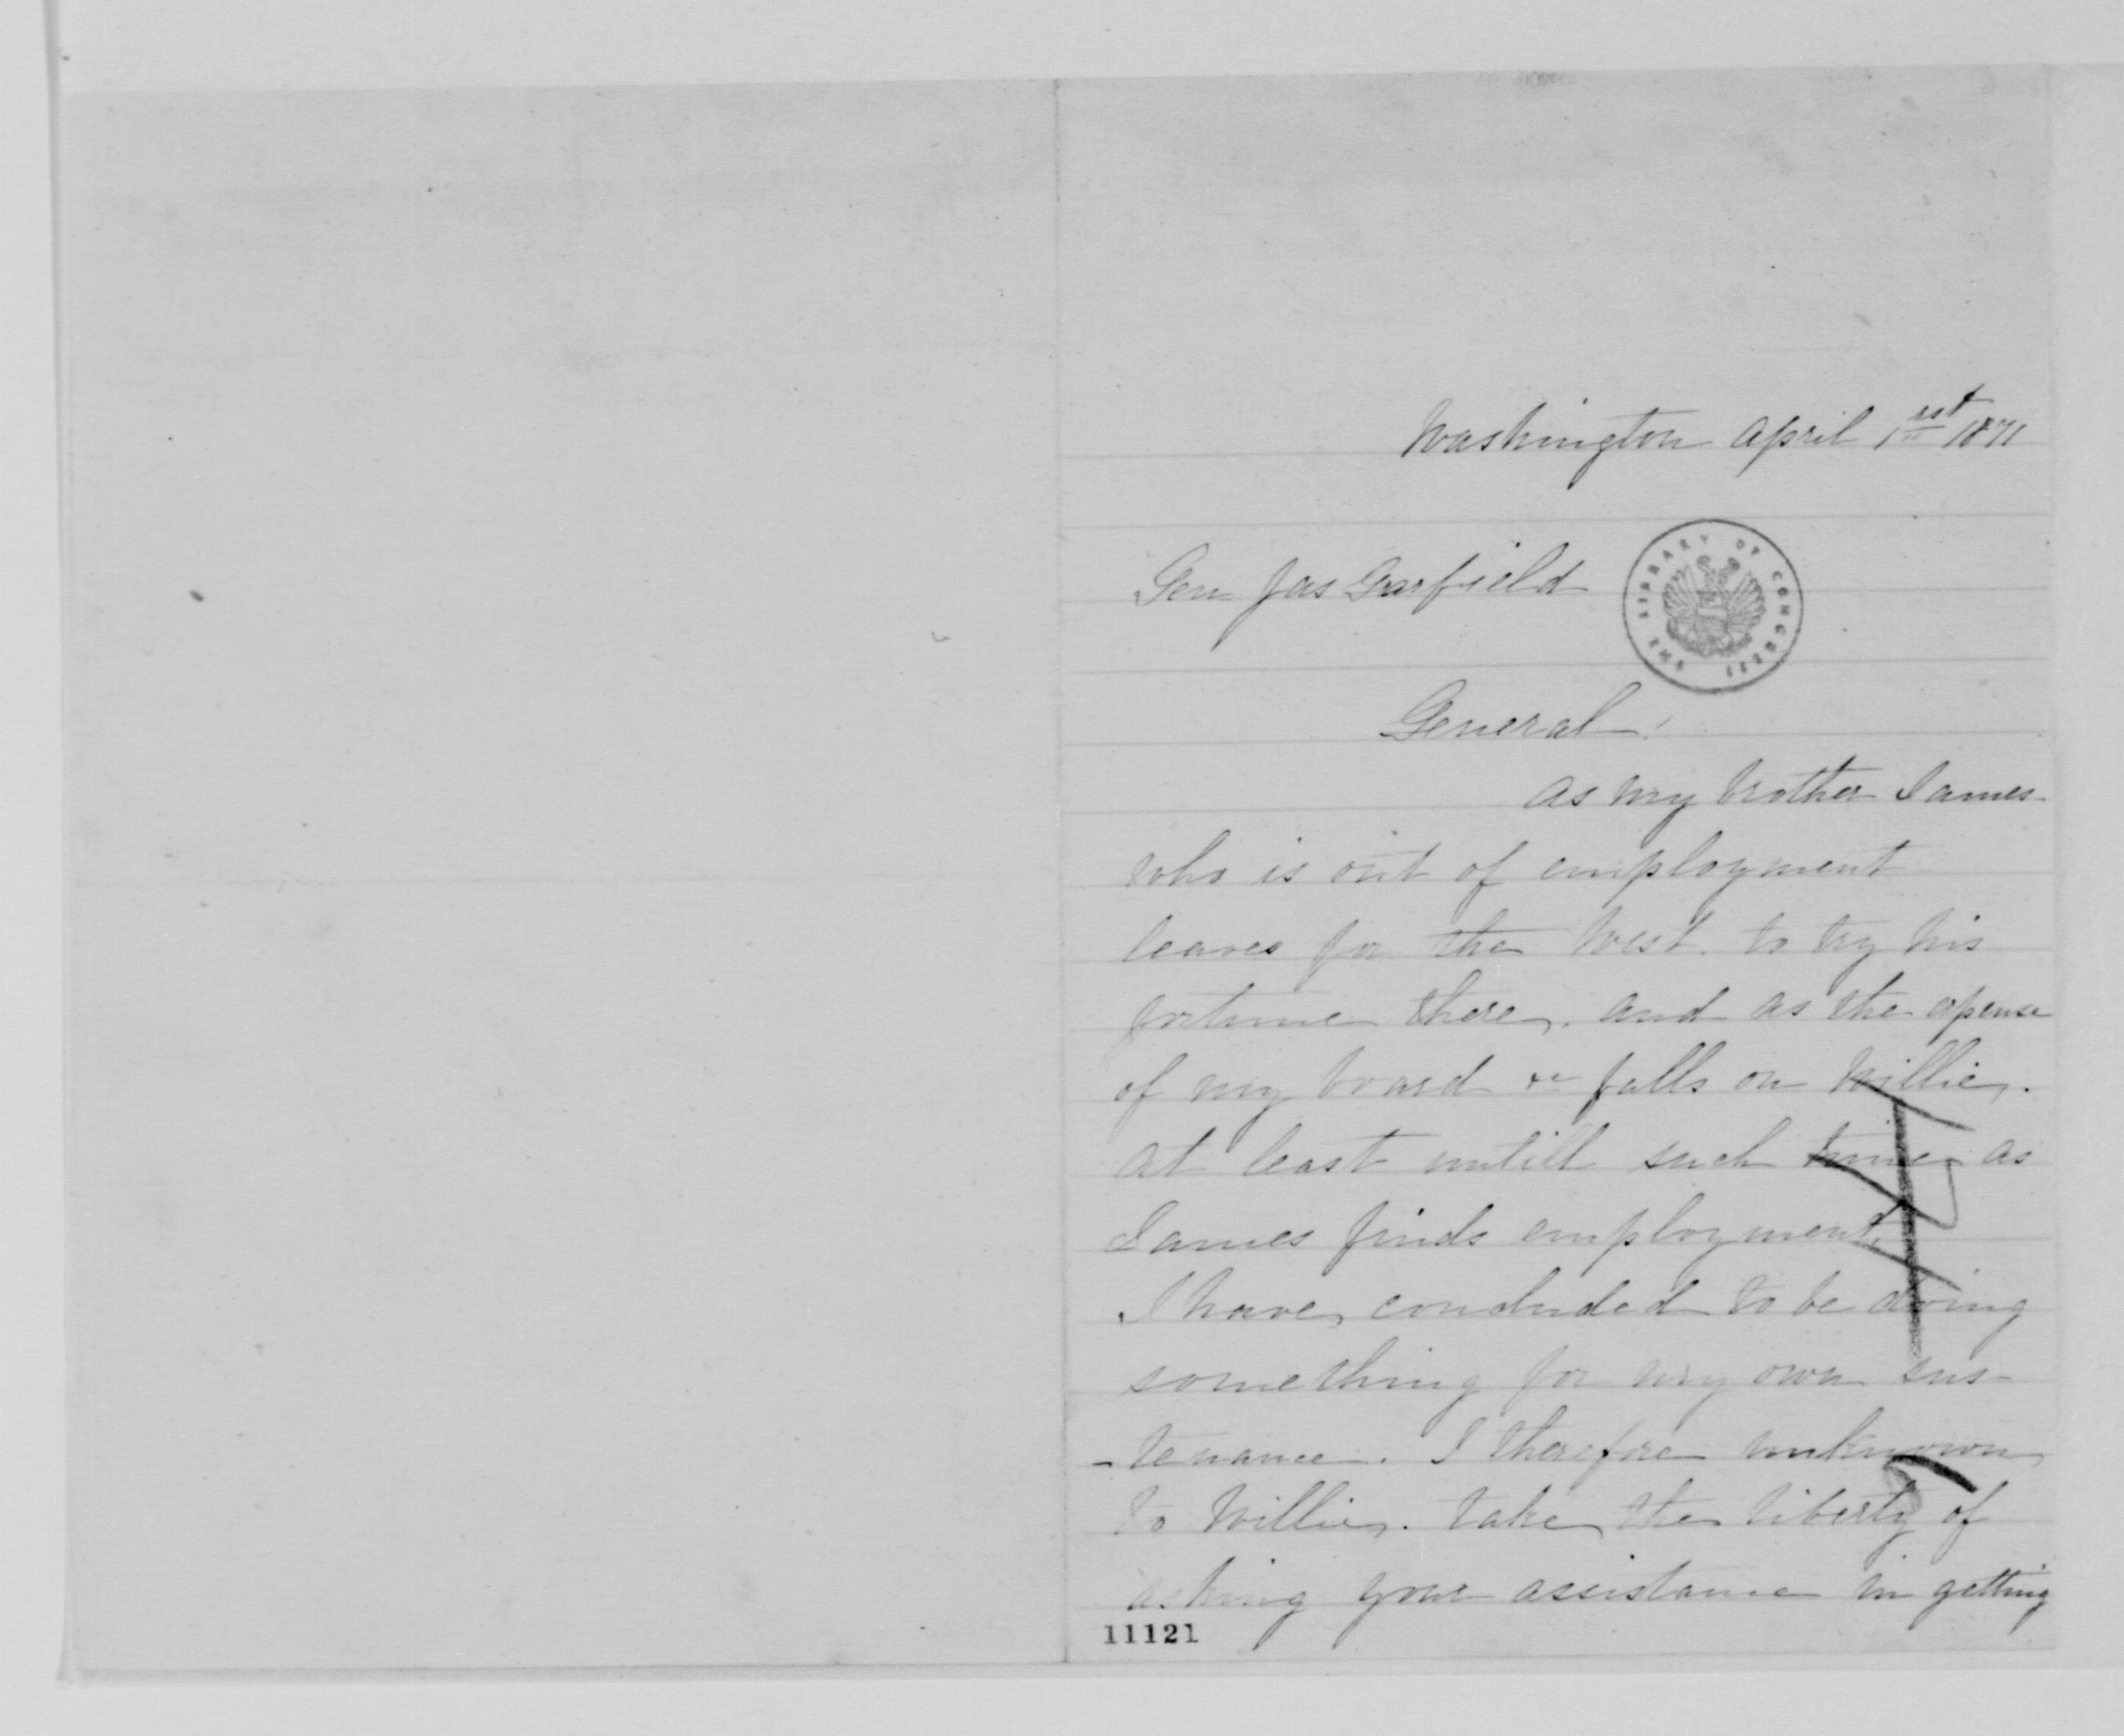 Washington April 1rst 1871
Gen Jas Garfield
THE LIBRARY OF CONGRESS
General:
As my brother James
who is out of employment
leaves for the West. to try his
fortune there. and as the expense
of my board &c falls on Willie.
at least untill such time as
James finds employment,
I have concluded to be doing
something for my own sus-
-tenance. I therefore unknown
to Willie. take the liberty of
asking your assistance in getting
11121